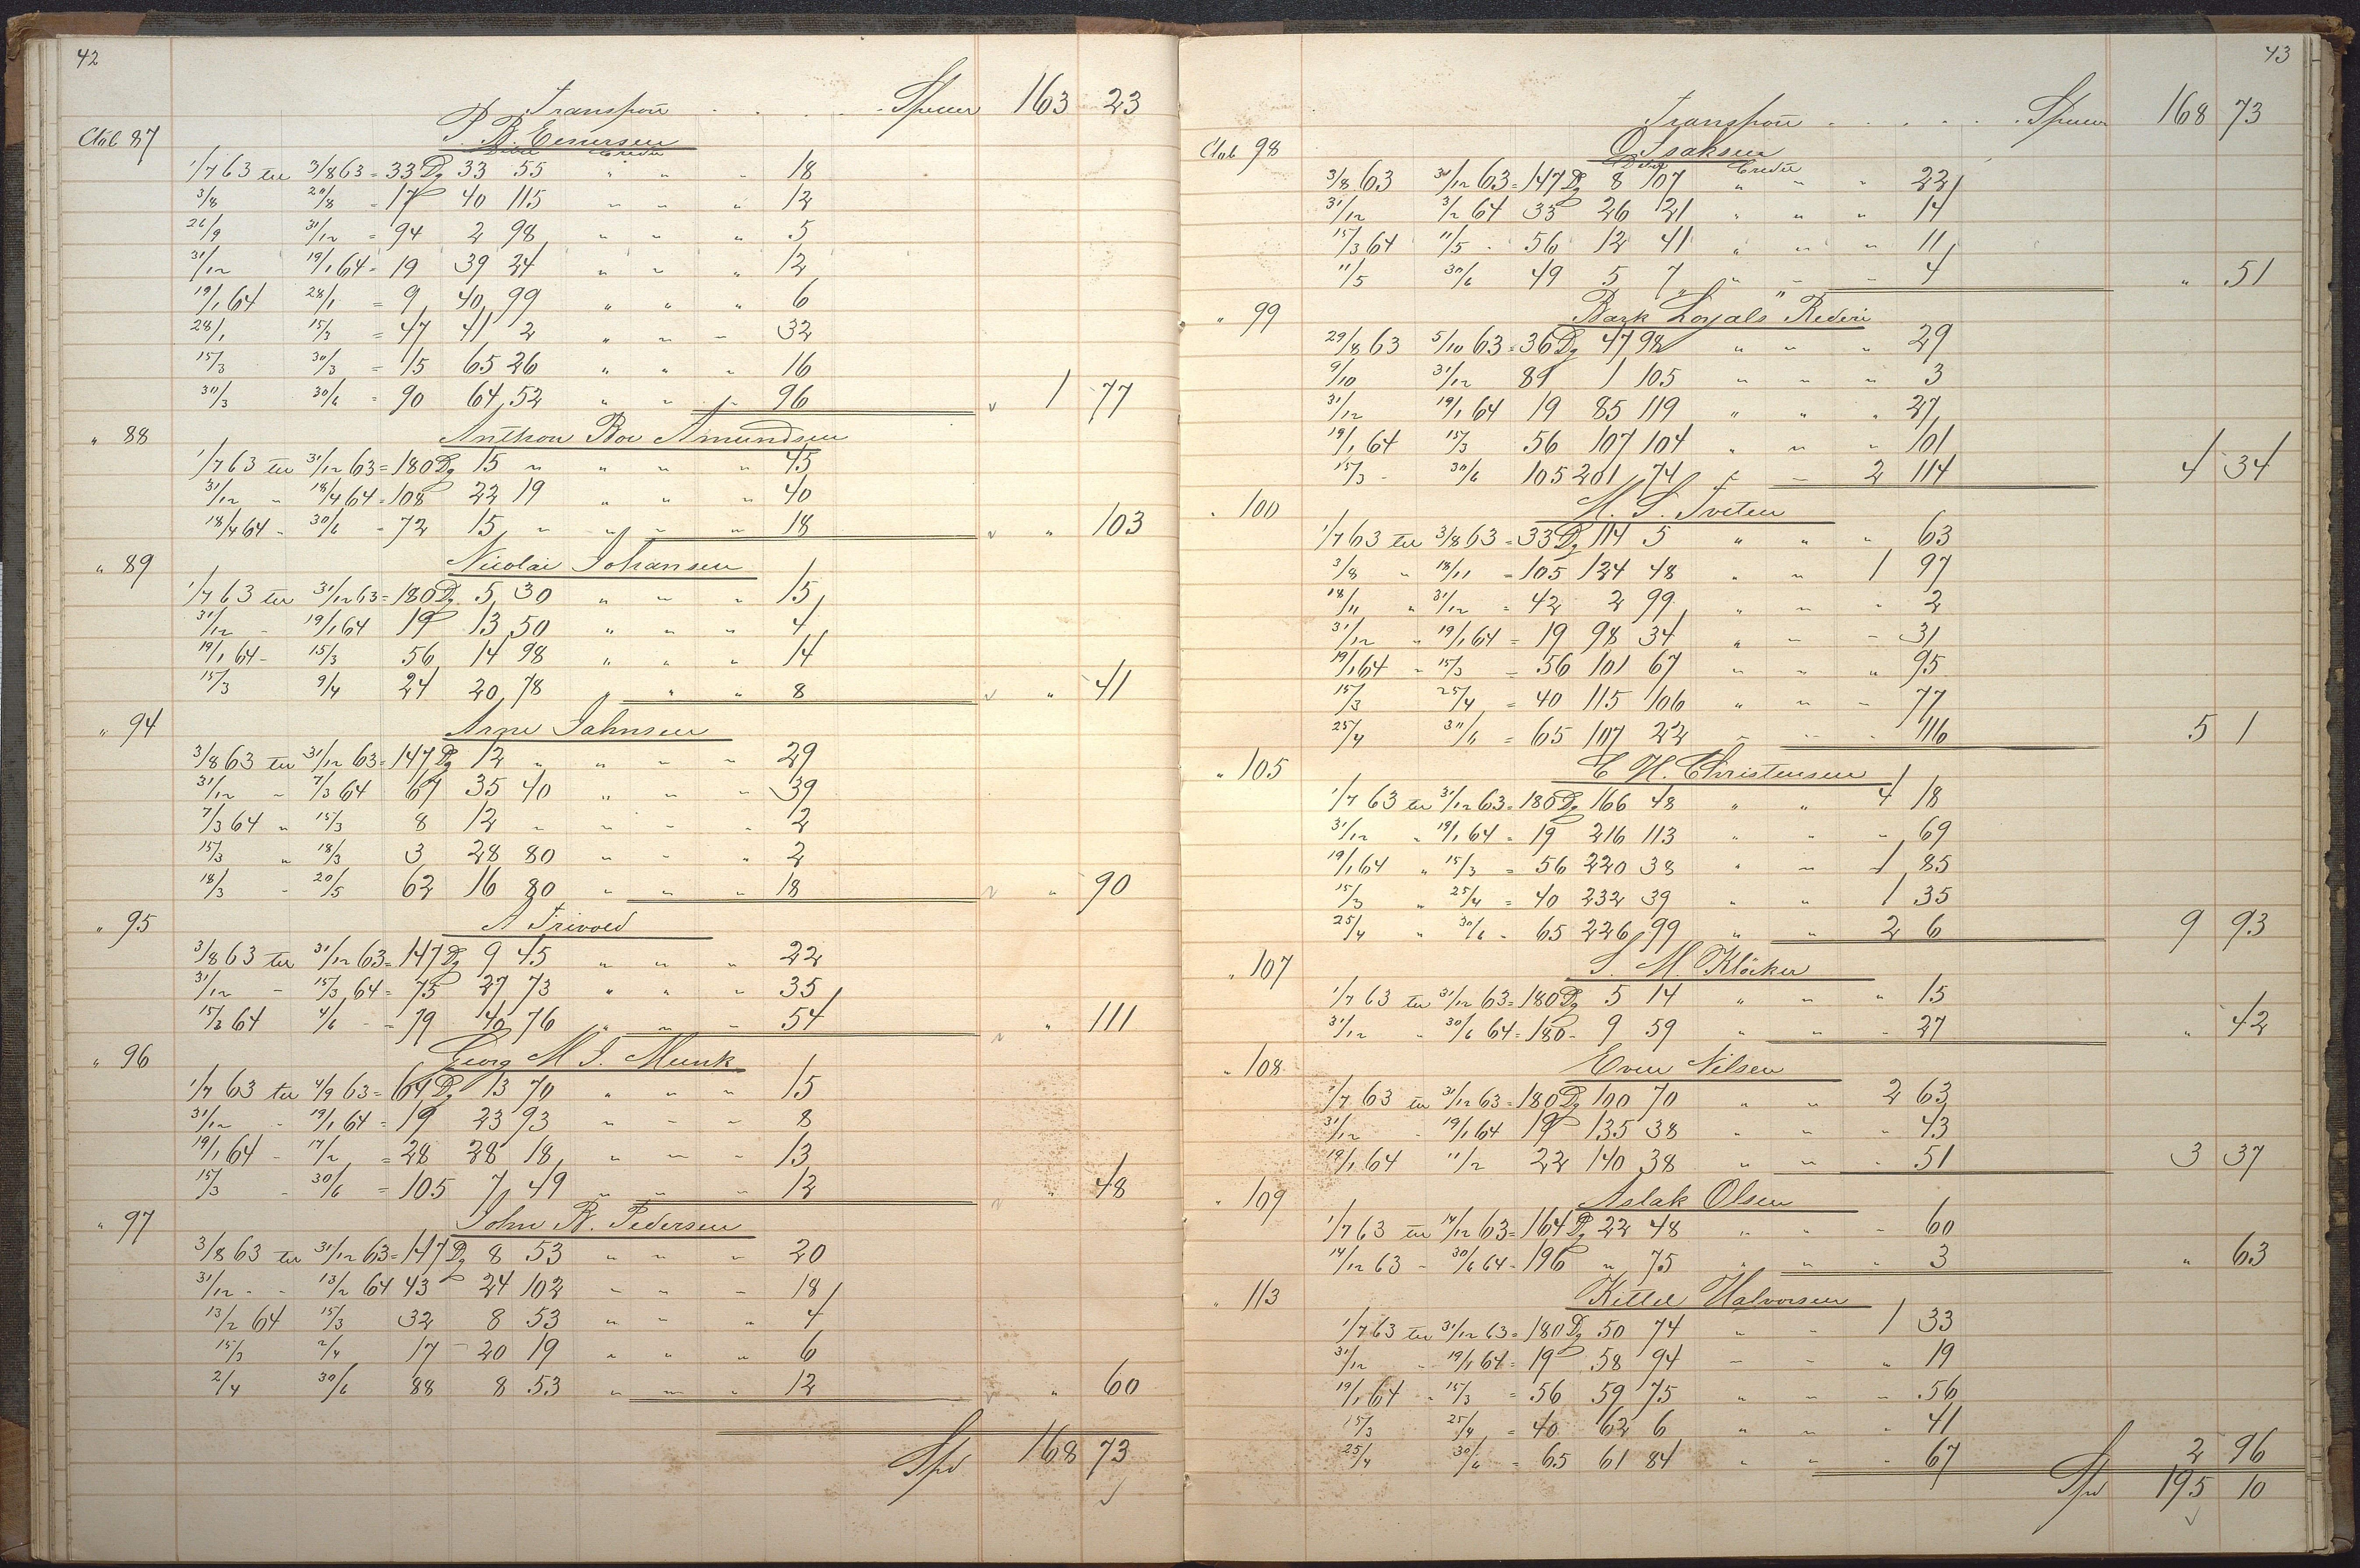 42
Transport . . . . Specier 163 23
Ctob 87
Debet Credit
1/7 63 til 3/8 63 = 33 Dg 33 55 " " " 18
3/8 20/8 = 17 40 115 " " " 12
26/9 31/12 = 94 2 98 " " " 5
31/12 19/1 64 = 19 39 24 " " " 12
19/1 64 28/1 = 9 40 99 " " " 6
28/1 15/3 = 47 41 2 " " " 32
15/3 30/3 = 15 65 26 " " " 16
30/3 30/6 = 90 64 52 " " " 96 1 77
" 88 Anthon Boe Amundsen
1/7 63 til 31/12 63 = 180 Dg 15 " " " " 45
31/12 - 18/4 64 = 108 22 19 " " " 40
18/4 64 - 30/6 = 72 15 " " " " 18 " 103
" 89 Nicolai Johansen
1/7 63 til 31/12 63 = 180 Dg 5 30 " " " 15
31/12 - 19/1 64 19 13 50 " " " 4
19/1 64 - 15/3 56 14 98 " " " 14
15/3 9/4 24 20 78 " " " 8 " 41
" 94 Arne Jahnsen
3/8 63 til 31/12 63 = 147 Dg 12 " " " " 29
31/12 - 7/3 64 67 35 40 " " " 39
7/3 64 " 15/3 8 12 " " " " 2
15/3 " 18/3 3 28 80 " " " 2
18/3 - 20/5 62 16 80 " " " 18 " 90
" 95 A Trivold
3/8 63 til 31/12 63 = 147 Dg 9 45 " " " 22
31/12 - 15/3 64 = 75 27 73 " " " 35
15/3 64 4/6 - = 79 40 76 " " " 54 " 111
" 96 Georg M J. Munk
1/7 63 til 4/9 63 = 64 Dg 13 70 " " " 15
31/12 - 19/1 64 = 19 23 93 " " " 8
19/1 64 - 17/2 = 28 28 18 " " " 13
15/3 - 30/6 = 105 7 49 " " " 12 " 48
" 97 John B. Pedersen
3/8 63 til 31/12 63 = 147 Dg 8 53 " " " 20
31/12 - - 13/2 64 43 24 102 " " " 18
13/2 64 15/3 32 8 53 " " " 4
15/3 2/4 17 - 20 19 " " " 6
2/4 30/6 88 8 53 " " " 12 " 60
Spd 168 73
43
Transport . . . . . Specier 168 73
Ctob 98 O Isaksen
Debet Credit
3/8 63 31/12 63 = 147 Dg 8 107 " " " 22
31/12 3/2 64 33 26 21 " " " 14
15/3 64 11/5 - 56 12 41 " " " 11
11/5 30/6 49 5 7 " " " 4 " 51
" 99 Bark "Loyals" Rederi
29/8 63 5/10 63 = 36 Dg 47 98 " " " 29
9/10 31/12 81 1 105 " " " 3
31/12 19/1 64 19 85 119 " " " 27
19/1 64 15/3 56 107 104 " " " 101
15/3 - 30/6 105 201 74 " " 2 114 4 34
" 100 M. S. Tveten
1/7 63 til 3/8 63 = 33 Dg 114 5 " " " 63
3/8 " 18/11 = 105 124 48 " " 1 97
18/11 " 31/12 = 42 2 99 " " " 2
31/12 " 19/1 64 = 19 98 34 " " " 31
19/1 64 - 15/3 = 56 101 67 " " " 95
15/3 25/4 = 40 115 106 " " " 77
25/4 30/6 = 65 107 22 " " " 116 5 1
" 105 C H. Christensen
1/7 63 til 31/12 63 = 180 Dg 166 48 " " 4 18
31/12 " 19/1 64 = 19 216 113 " " " 69
19/1 64 " 15/3 = 56 220 38 " " 1 85
15/3 " 25/4 = 40 232 39 " " 1 35
25/4 " 30/6 - 65 226 99 " " 2 6 9 93
" 107 S. M. Klöcker
1/7 63 til 31/12 63 = 180 Dg 5 14 " " " 15
31/12 - 30/6 64 = 180 - 9 59 " " " 27 " 42
" 108 Even Nilsen
1/7 63 til 31/12 63 = 180 Dg 100 70 " " 2 63
31/12 - 19/1 64 19 135 38 " " " 43
19/1 64 11/2 22 140 38 " " " 51 3 37
" 109 Aslak Olsen
1/7 63 til 14/12 63 = 164 Dg 22 48 " " " 60
14/12 63 - 30/6 64 - 196 " 75 " " " 3 " 63
" 113 Kittel Halvorsen
1/7 63 til 31/12 63 = 180 Dg 50 74 " " 1 33
31/12 - 19/1 64 = 19 58 94 " " " 19
19/1 64 - 15/3 = 56 59 75 " " " 56
15/3 25/4 = 40 62 6 " " " 41
25/4 30/6 = 65 61 84 " " " 67 2 96
Spd 195 10